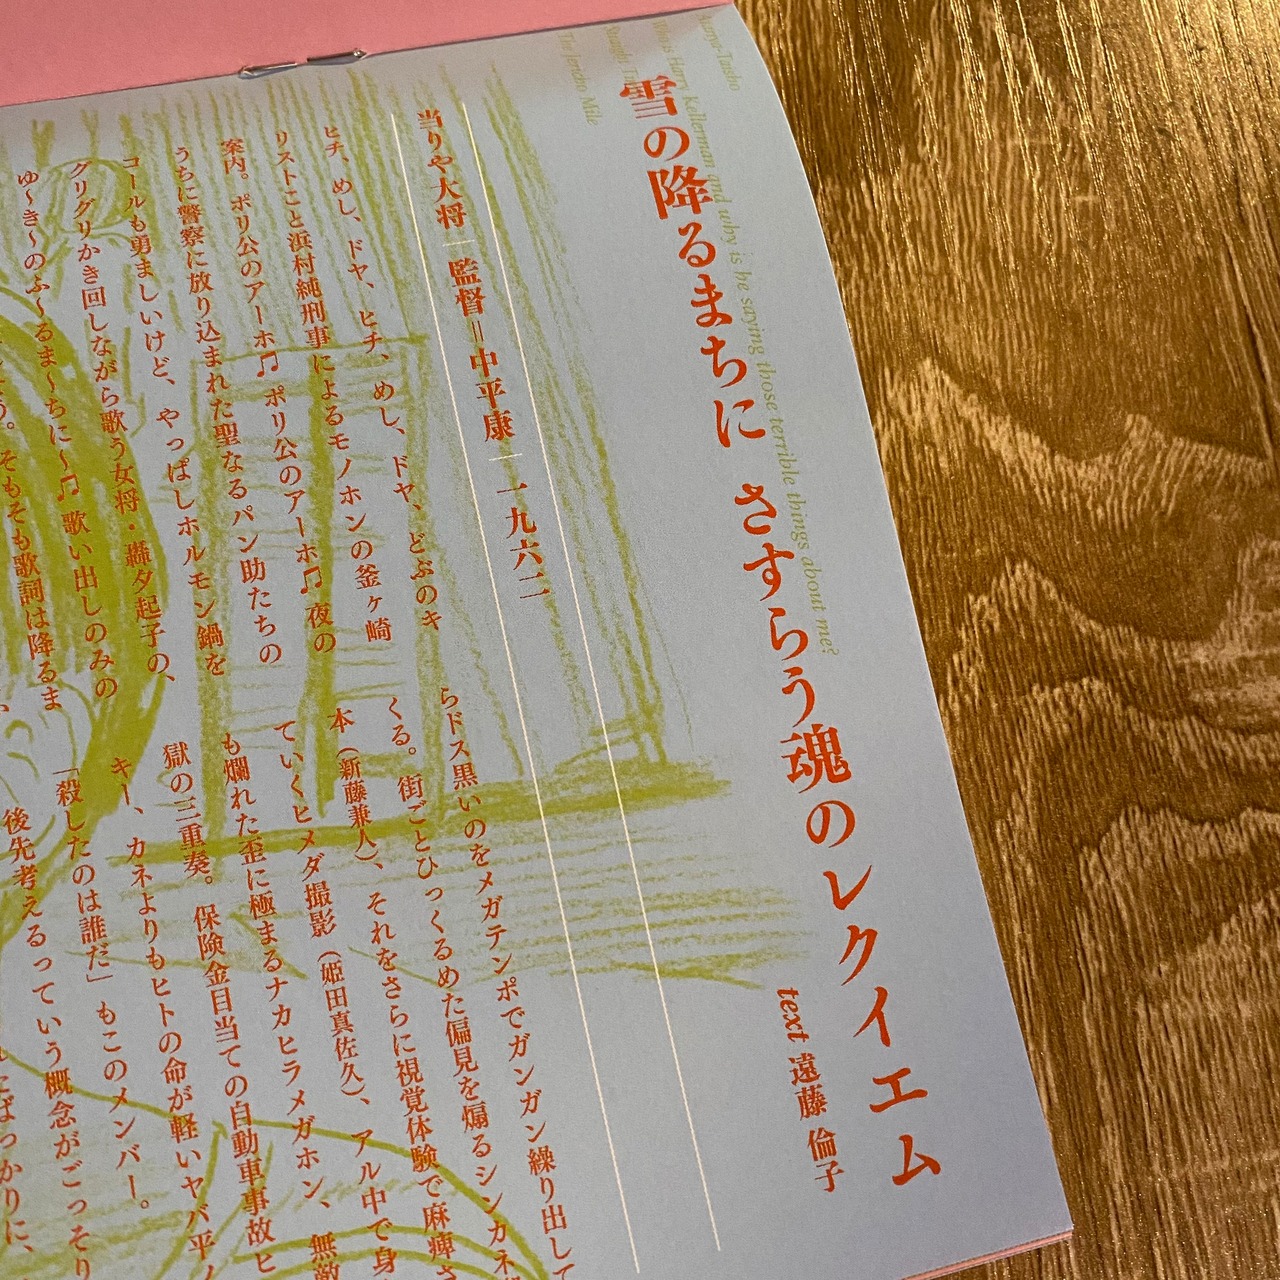 雪の降るまちに さすらう魂のレクイエム
text 遠藤 倫子
and why is he saying those terrible things about me?
当りや大将｜監督＝中平康｜一九六二
ヒチ、めし、ドヤ、ヒチ、めし、ドヤ、どぶのキ
リストこと浜村純刑事によるモノホンの釜ヶ崎
案内。ポリ公のアーホ♫ ポリ公のアーホ♫ 夜の
うちに警察に放り込まれた聖なるパン助たちの
コールも勇ましいけど、やっぱしホルモン鍋を
グリグリかき回しながら歌う女将・轟夕起子の、
ゆ〜き〜のふ〜るま〜ちに〜♫ 歌い出しのみの
そもそも歌詞は降るま
らドス黒いのをメガテンポでガンガン繰り出して
くる。街ごとひっくるめた偏見を煽るシンカネ
本（新藤兼人）、それをさらに視覚体験で麻痺さ
ていくヒメダ撮影（姫田真佐久）、アル中で身
も爛れた歪に極まるナカヒラメガホン、無敵
獄の三重奏。保険金目当ての自動車事故ヒ
キー、カネよりもヒトの命が軽いヤバ平
「殺したのは誰だ」もこのメンバー。
後先考えるっていう概念がごっそり
ばっかりに、